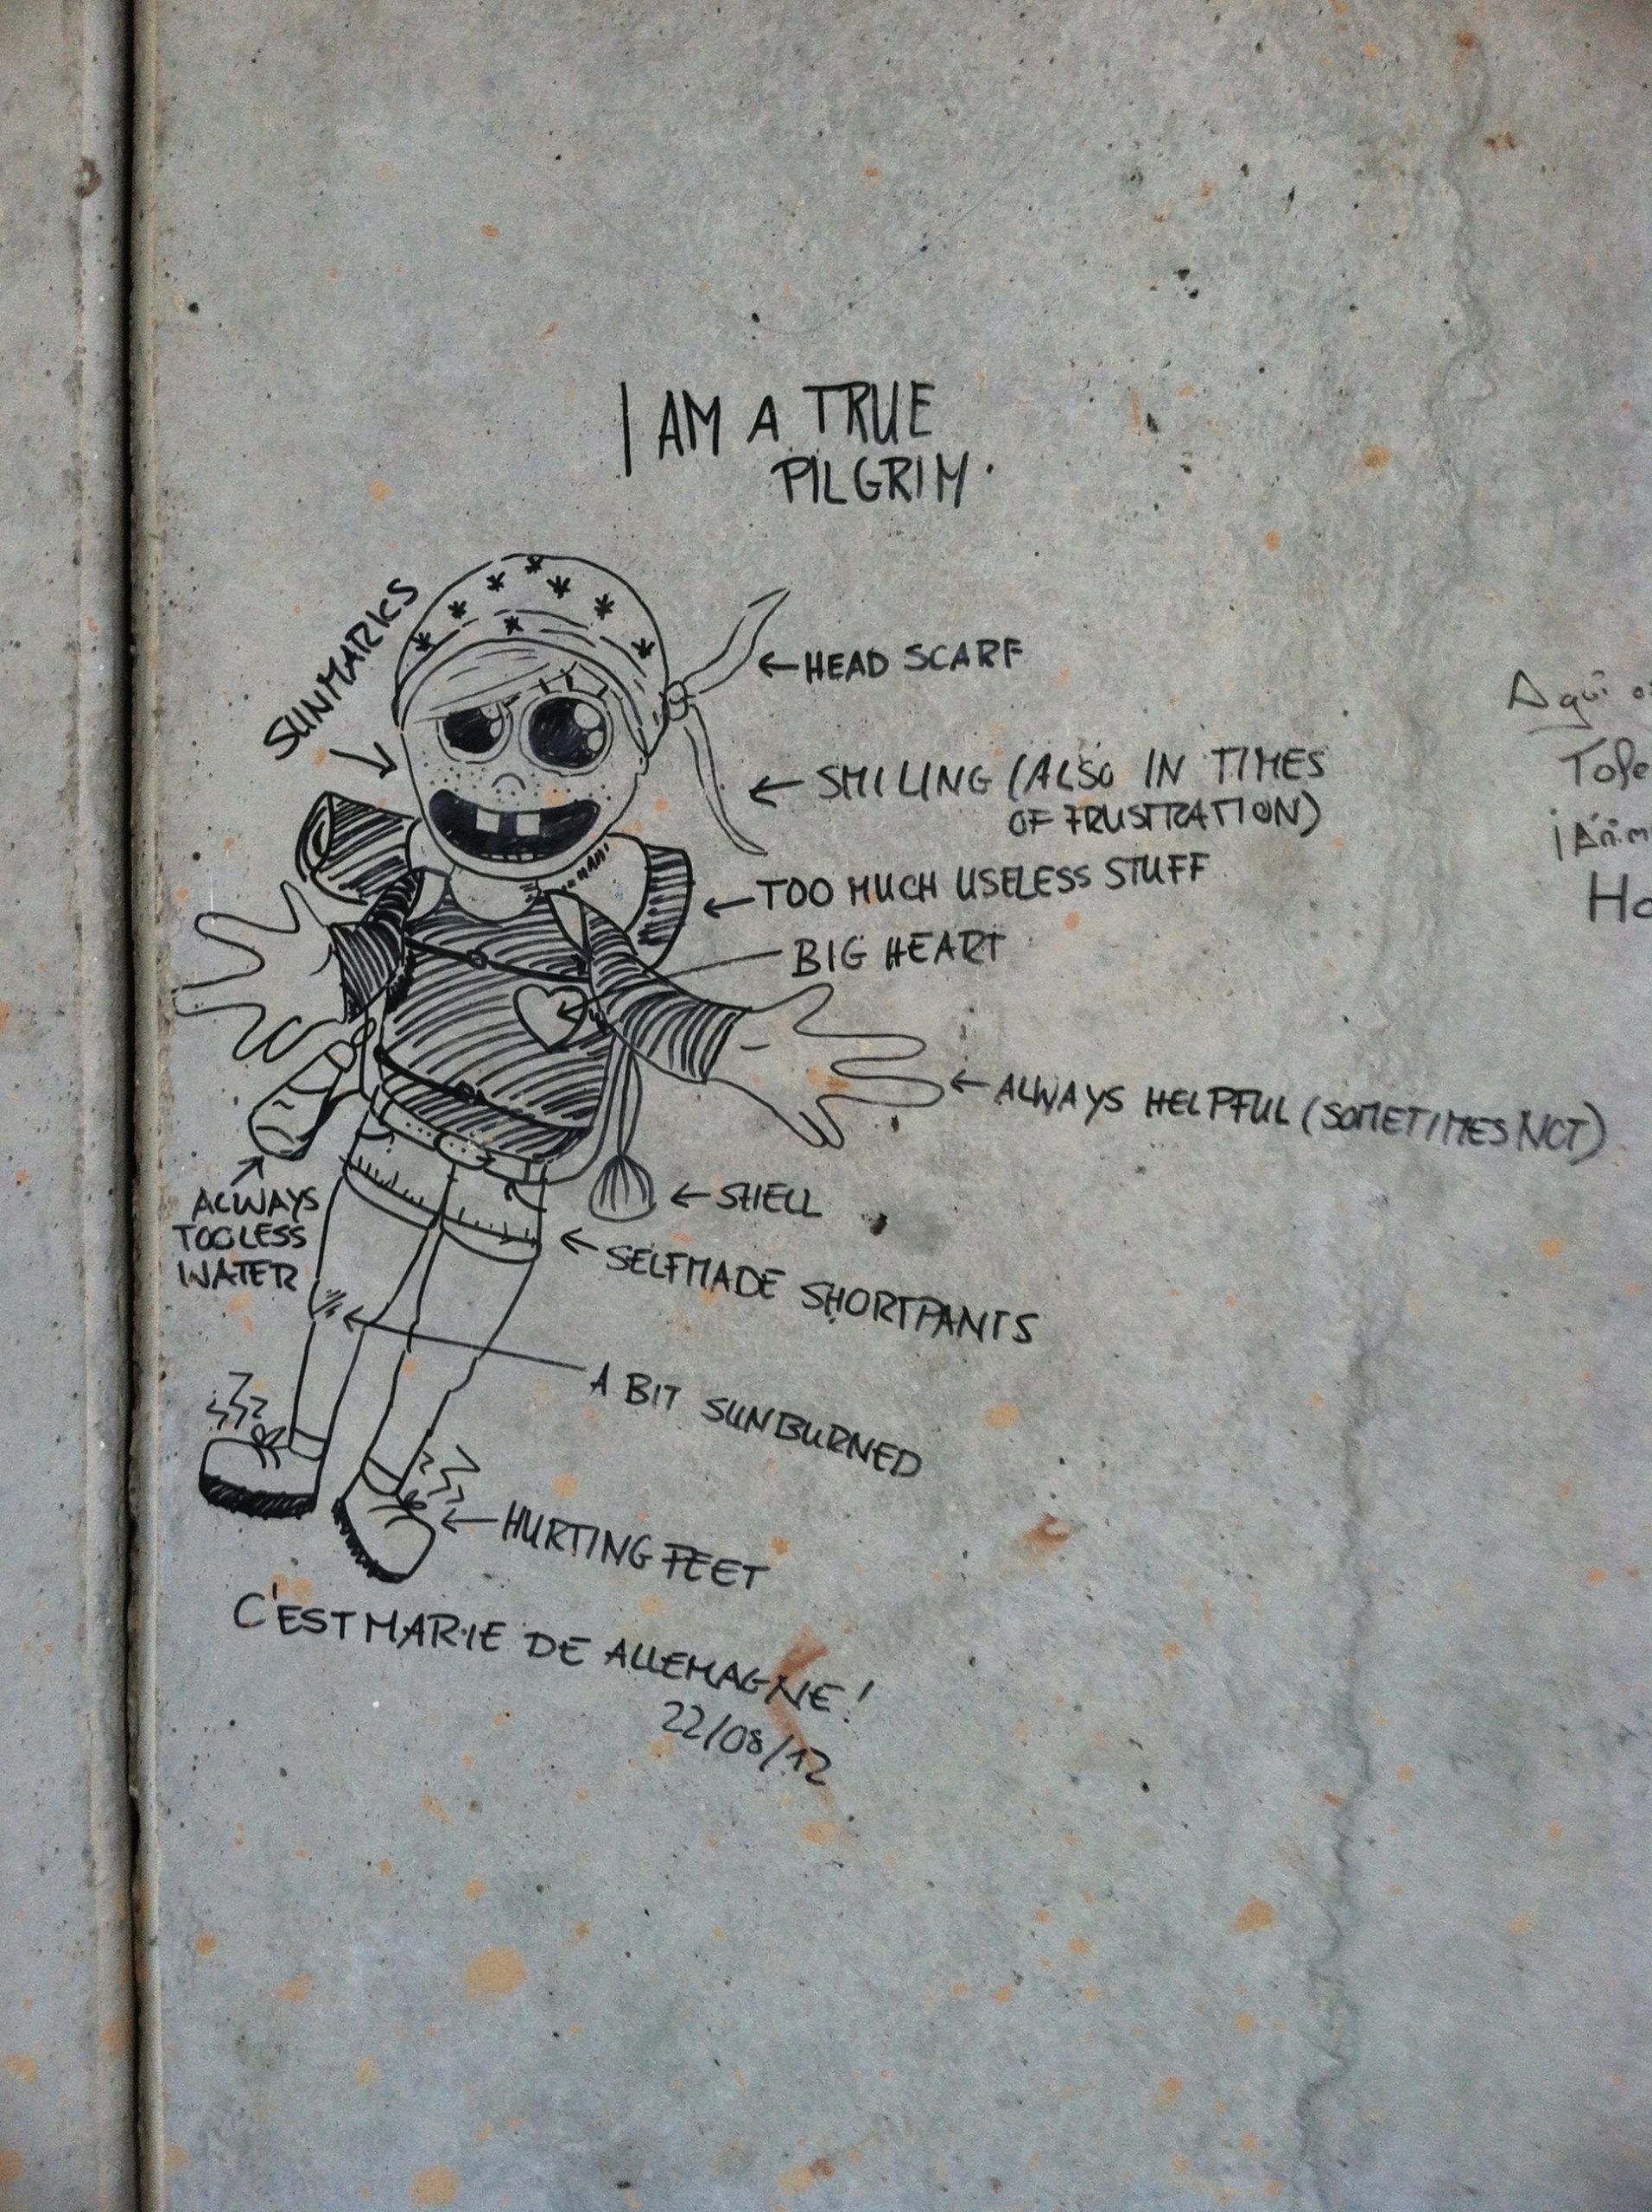 I AM A TRUE
PILGRIM.
SUNMARKS
HEAD SCARF
SMILING (ALSO IN TIMES
OF FRUSTRATION)
TOO MUCH USELESS STUFF
BIG HEART
ALWAYS HELPFUL (SOMETIMES NOT)
SHELL
ALWAYS
TOO LESS
WATER
SELFMADE SHORTPANTS
A BIT SUNBURNED
HURTING FEET
C'EST MARIE DE ALLEMAGNE!
22/08/12
Aqui